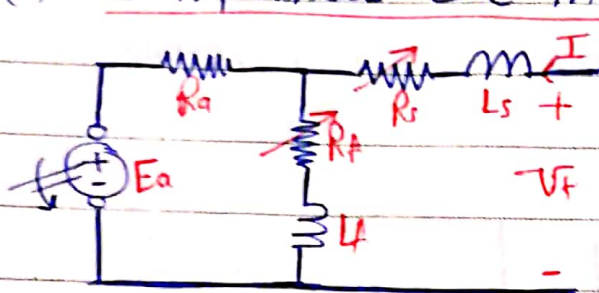 I
Ra
Rs
Ls
+
Rf
+
-
Ea
Vt
Lf
-